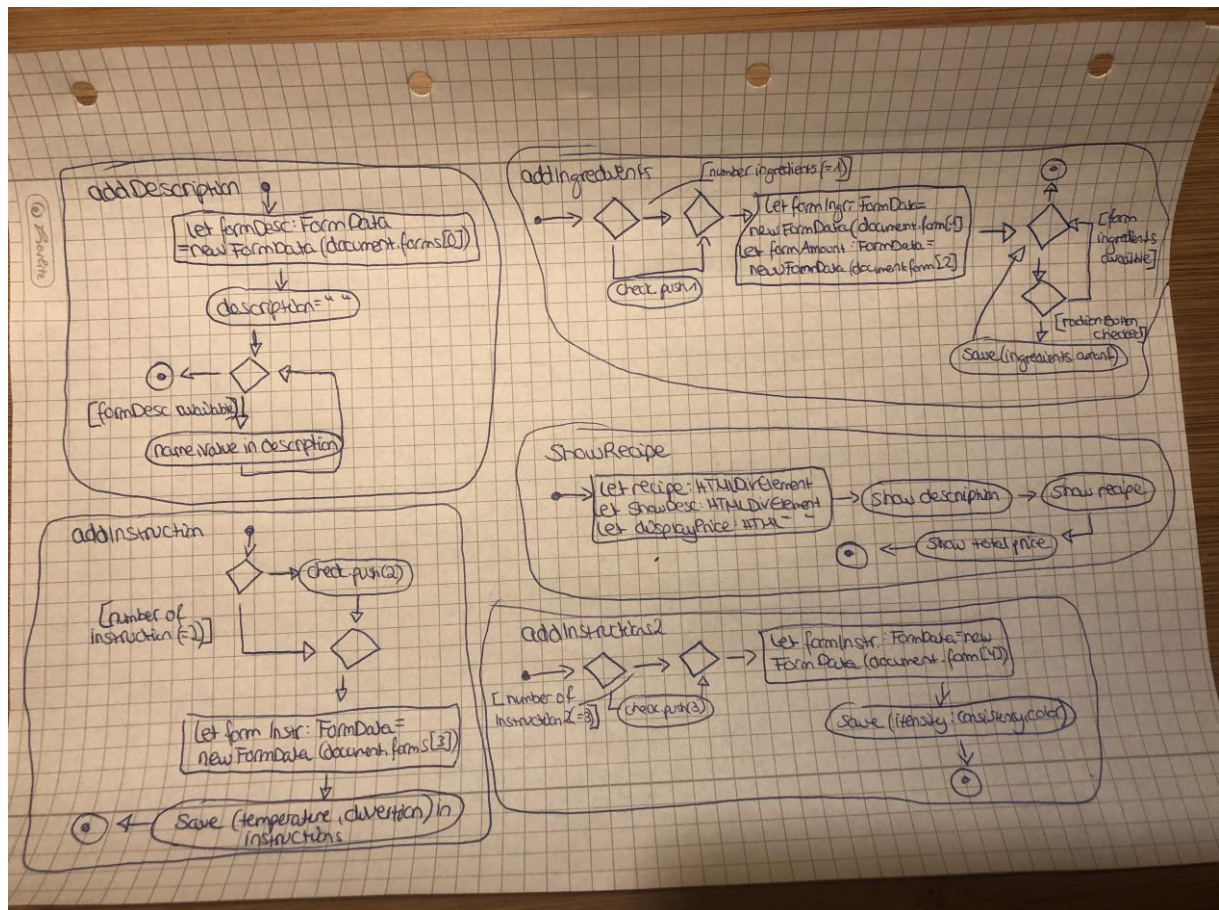 addDescription
let formDesc: FormData
=new FormData(document.forms[0])
description=" "
[formDesc available]
name.value in description
addIngredients
[number ingredients(=1)]
check.push1
let formIngr: FormData=
new FormData(document.form[1]
let formAmount: FormData=
new FormData(document.form[2]
[form
ingredients
available]
[radionButton
checked]
Save(ingredients amant)
ShowRecipe
let recipe: HTMLDivElement
let showDesc: HTMLDivElement
let displayPrice: HTML" "
Show description
Show recipe
Show total price
addInstruction
check.push(2)
[number of
instruction(=2)]
let form Instr: FormData=
new FormData (document.forms[3])
Save (temperature, duvertion) in
instructions
addInstructions2
[number of
Instruction2(=3)]
check.push(3)
let formInstr: FormData=new
FormData(document.form[4])
Save (itensity: consistency, color)